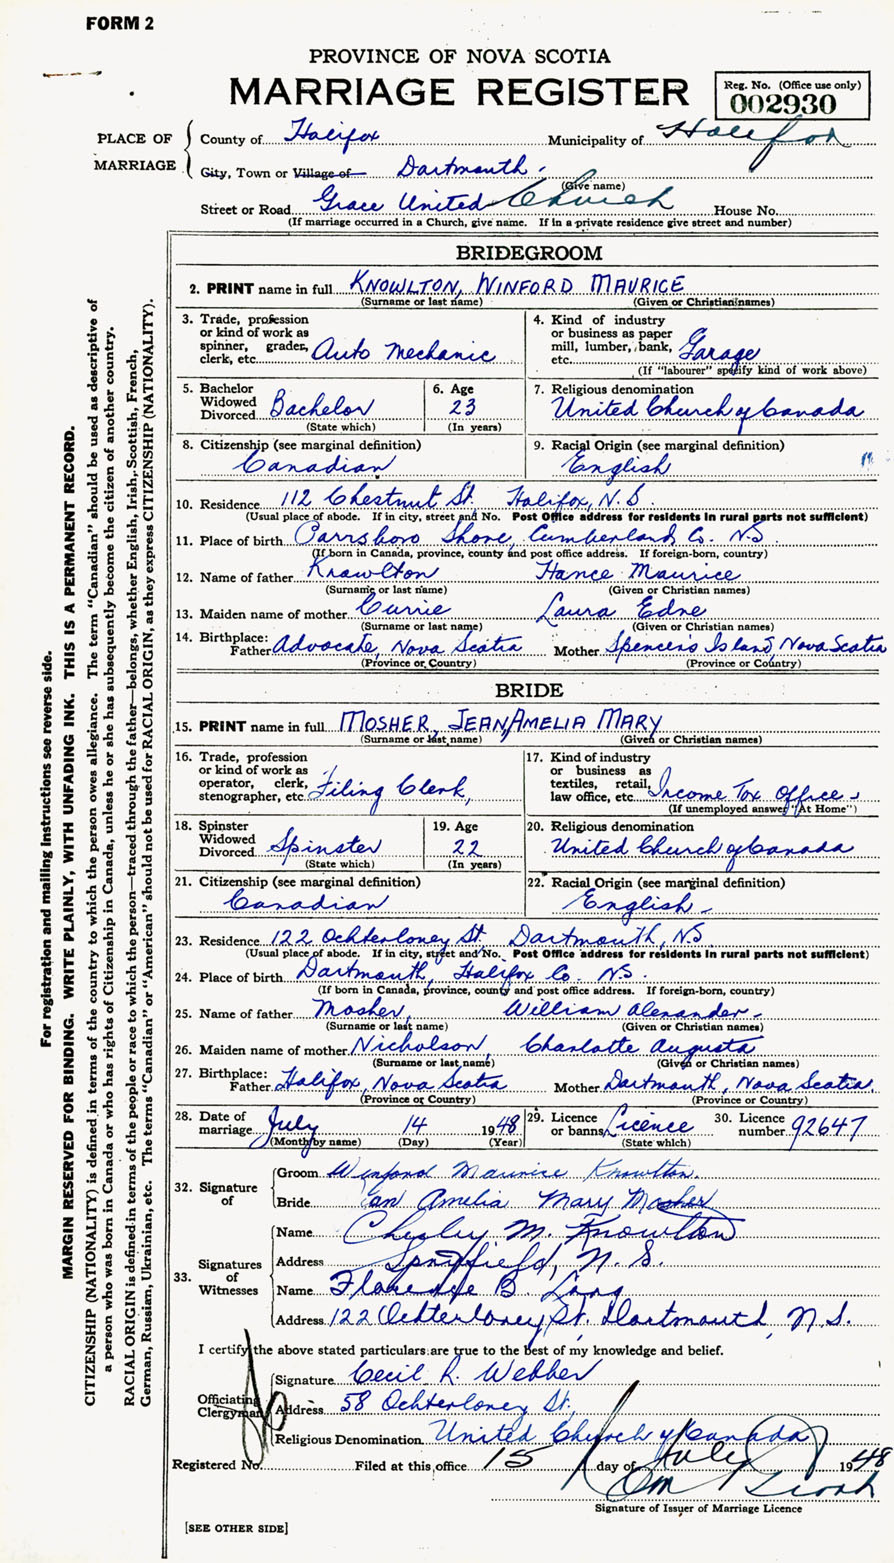 FORM 2
PROVINCE OF NOVA SCOTIA
MARRIAGE REGISTER
Reg. No. (Office use only)
002930
PLACE OF MARRIAGE
County of Halifax Municipality of Halifax
City, Town or Village of Dartmouth.
(Give name)
Street or Road Grace United Church House No.
(If marriage occurred in a Church, give name. If in a private residence give street and number)
BRIDEGROOM
2. PRINT name in full KNOWLTON, WINFORD MAURICE
(Surname or last name) (Given or Christian names)
3. Trade, profession or kind of work as spinner, grader, clerk, etc. Auto Mechanic
4. Kind of industry or business as paper mill, lumber, bank, etc. Garage
(If "labourer" specify kind of work above)
5. Bachelor Widowed Divorced Bachelor
(State which)
6. Age 23
(In years)
7. Religious denomination
United Church of Canada
8. Citizenship (see marginal definition)
Canadian
9. Racial Origin (see marginal definition)
English
10. Residence 112 Chestnut St. Halifax, N.S.
(Usual place of abode. If in city, street and No. Post Office address for residents in rural parts not sufficient)
11. Place of birth Parrsboro Shore, Cumberland Co. N.S.
(If born in Canada, province, county and post office address. If foreign-born, country)
12. Name of father Knowlton Hance Maurice
(Surname or last name) (Given or Christian names)
13. Maiden name of mother Currie Laura Edne
(Surname or last name) (Given or Christian names)
14. Birthplace:
Father Advocate, Nova Scotia Mother Spencer's Island, Nova Scotia
(Province or Country) (Province or Country)
BRIDE
15. PRINT name in full MOSHER, JEAN AMELIA MARY
(Surname or last name) (Given or Christian names)
16. Trade, profession or kind of work as operator, clerk, stenographer, etc. Filing Clerk,
17. Kind of industry or business as textiles, retail, law office, etc. Income Tax Office
(If unemployed answer "At Home")
18. Spinster Widowed Divorced Spinster
(State which)
19. Age 22
(In years)
20. Religious denomination
United Church of Canada
21. Citizenship (see marginal definition)
Canadian
22. Racial Origin (see marginal definition)
English
23. Residence 122 Ochterloney St. Dartmouth, N.S
(Usual place of abode. If in city, street and No. Post Office address for residents in rural parts not sufficient)
24. Place of birth Dartmouth, Halifax Co. N.S.
(If born in Canada, province, county and post office address. If foreign-born, country)
25. Name of father Mosher, William Alexander
(Surname or last name) (Given or Christian names)
26. Maiden name of mother Nicholson, Charlotte Augusta
(Surname or last name) (Given or Christian names)
27. Birthplace:
Father Halifax, Nova Scotia Mother Dartmouth, Nova Scotia,
(Province or Country) (Province or Country)
28. Date of marriage July 14 1948
(Month by name) (Day) (Year)
29. Licence or banns Licence
(State which)
30. Licence number 92647
32. Signature of
Groom Winford Maurice Knowlton.
Bride Jean Amelia Mary Mosher
33. Signatures of Witnesses
Name Chesley M. Knowlton
Address Springfield, N.S.
Name Florence B. Long
Address 122 Ochterloney St. Dartmouth, N.S.
I certify the above stated particulars are true to the best of my knowledge and belief.
Officiating Clergyman
Signature Cecil R. Webber
Address 58 Ochterloney St.
Religious Denomination United Church of Canada
Registered No. Filed at this office 15 day of July 1948
Signature of Issuer of Marriage Licence
[SEE OTHER SIDE]
For registration and mailing instructions see reverse side.
MARGIN RESERVED FOR BINDING. WRITE PLAINLY, WITH UNFADING INK. THIS IS A PERMANENT RECORD.
CITIZENSHIP (NATIONALITY) is defined in terms of the country to which the person owes allegiance. The term "Canadian" should be used as descriptive of
a person who was born in Canada or who has rights of Citizenship in Canada, unless he or she has subsequently become the citizen of another country.
RACIAL ORIGIN is defined in terms of the people or race to which the person—traced through the father—belongs, whether English, Irish, Scottish, French,
German, Russian, Ukrainian, etc. The terms "Canadian" or "American" should not be used for RACIAL ORIGIN, as they express CITIZENSHIP (NATIONALITY).